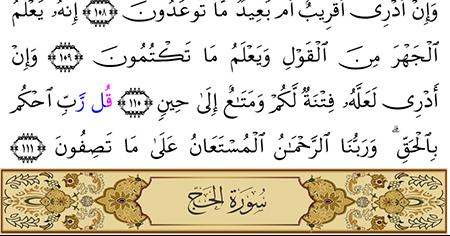 وَإِنْ أَدْرِىٓ أَقَرِيبٌ أَم بَعِيدٌ مَّا تُوعَدُونَ ١٠٨ إِنَّهُۥ يَعْلَمُ
ٱلْجَهْرَ مِنَ ٱلْقَوْلِ وَيَعْلَمُ مَا تَكْتُمُونَ ١٠٩ وَإِنْ
أَدْرِى لَعَلَّهُۥ فِتْنَةٌ لَّكُمْ وَمَتَٰعٌ إِلَىٰ حِينٍ ١١٠ قُل رَّبِّ ٱحْكُم
بِٱلْحَقِّ ۗ وَرَبُّنَا ٱلرَّحْمَٰنُ ٱلْمُسْتَعَانُ عَلَىٰ مَا تَصِفُونَ ١١١
سُورَةُ الحَجِّ